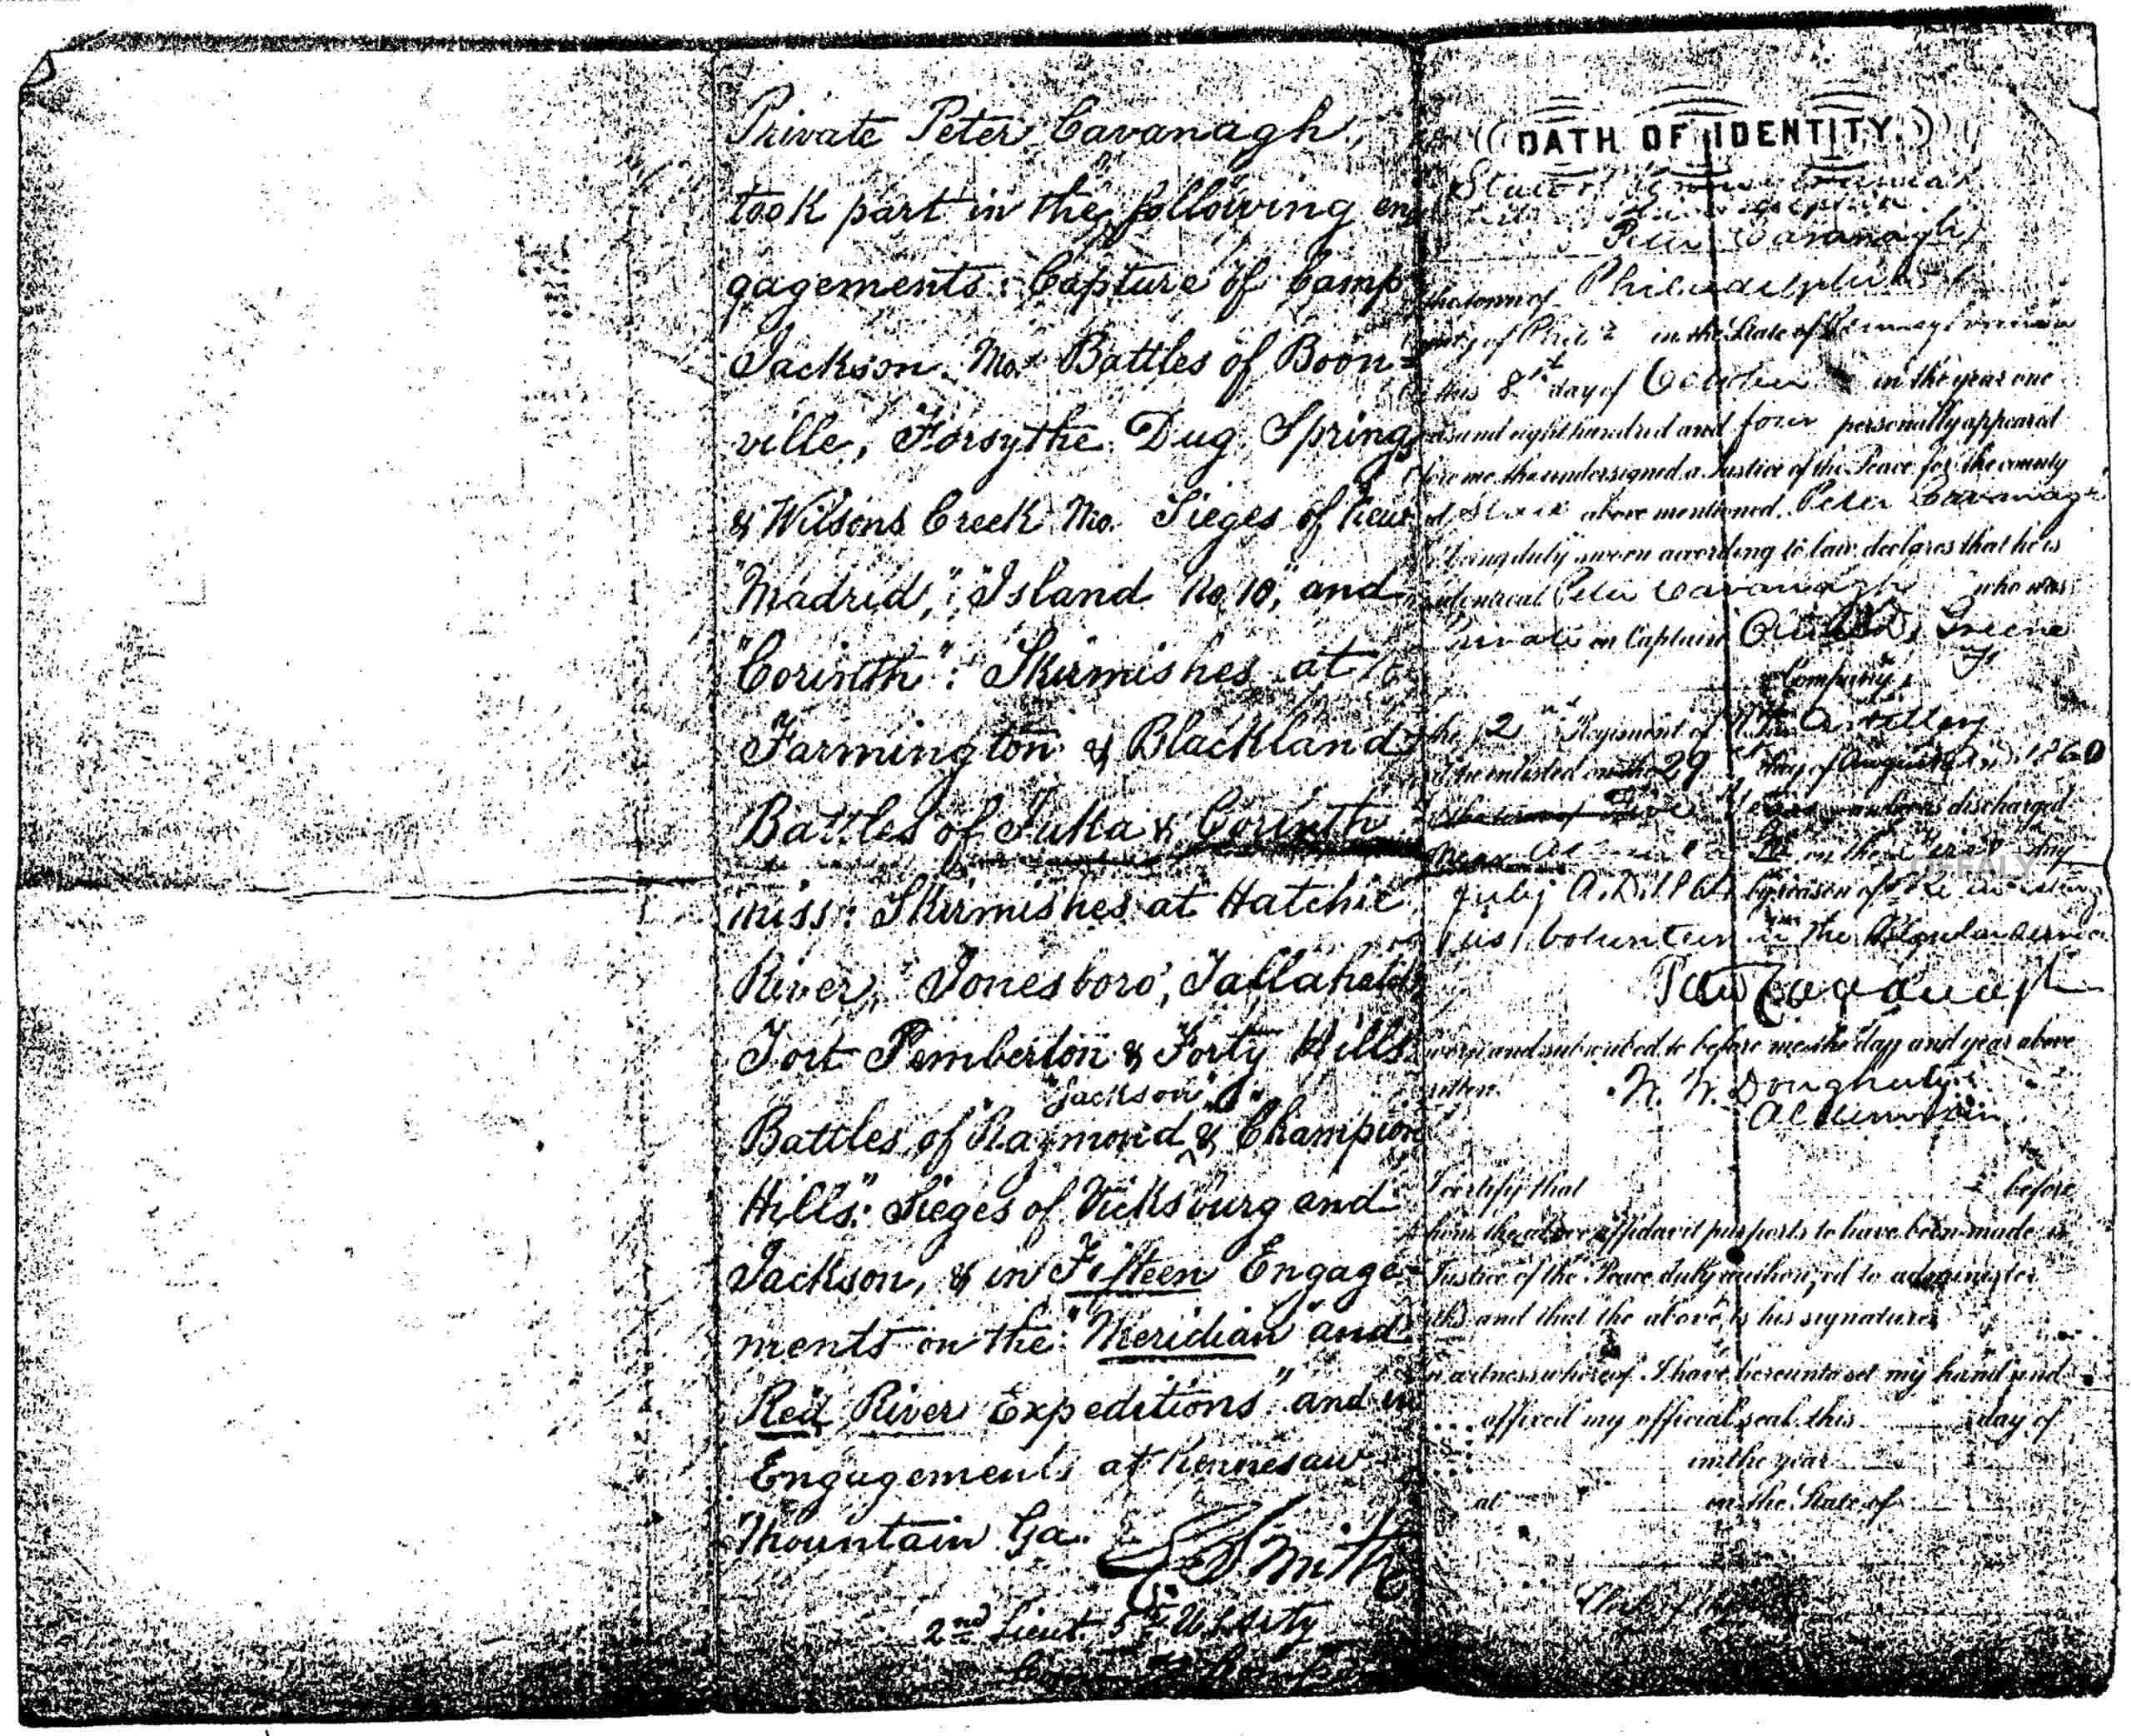 Private Peter Cavanagh,
took part in the following en
gagements: Capture of Camp
Jackson Mo. Battles of Boon-
ville, Forsythe Dug Springs
& Wilsons Creek Mo. Sieges of New
Madrid," "Island No. 10", and
"Corinth": Skirmishes at
Farmington & Blackland
Battles of Iuka & Corinth
Miss: Skirmishes at Hatchie
River, "Jonesboro", Tallahatchie
Fort Pemberton & Forty Hills
"Jackson"
Battles of Raymond & Champion
Hills": Sieges of Vicksburg and
Jackson, & in Fifteen Engage-
ments on the "Meridian and
Red River Expeditions" and in
Engagements at Kennesaw
Mountain Ga.
Smith
2nd Lieut 5th US Arty
OATH OF IDENTITY.
State of Pennsylvania
Peter Cavanagh
the town of Philadelphia
in the State of Pennsylvania
this 8th day of October in the year one
eight hundred and four personally appeared
me the undersigned a Justice of the Peace for the county
above mentioned, Peter Cavanagh
being duly sworn according to law declares that he is
Peter Cavanagh who was
Captain Greene
Company
the 2nd Regiment of Artillery
enlisted on the 29 day of August 1860
discharged
on the day
OFFALY
July A.D. by reason of
volunteer in the Regular Service
Peter Cavanagh
sworn and subscribed to before me the day and year above
written. W. W. Dougherty
Alderman
I certify that before
whom the above affidavit purports to have been made is
Justice of the Peace duly authorized to administer
and that the above is his signature
In witness whereof I have hereunto set my hand and
affixed my official seal this day of
in the year
at in the State of
Clerk of the